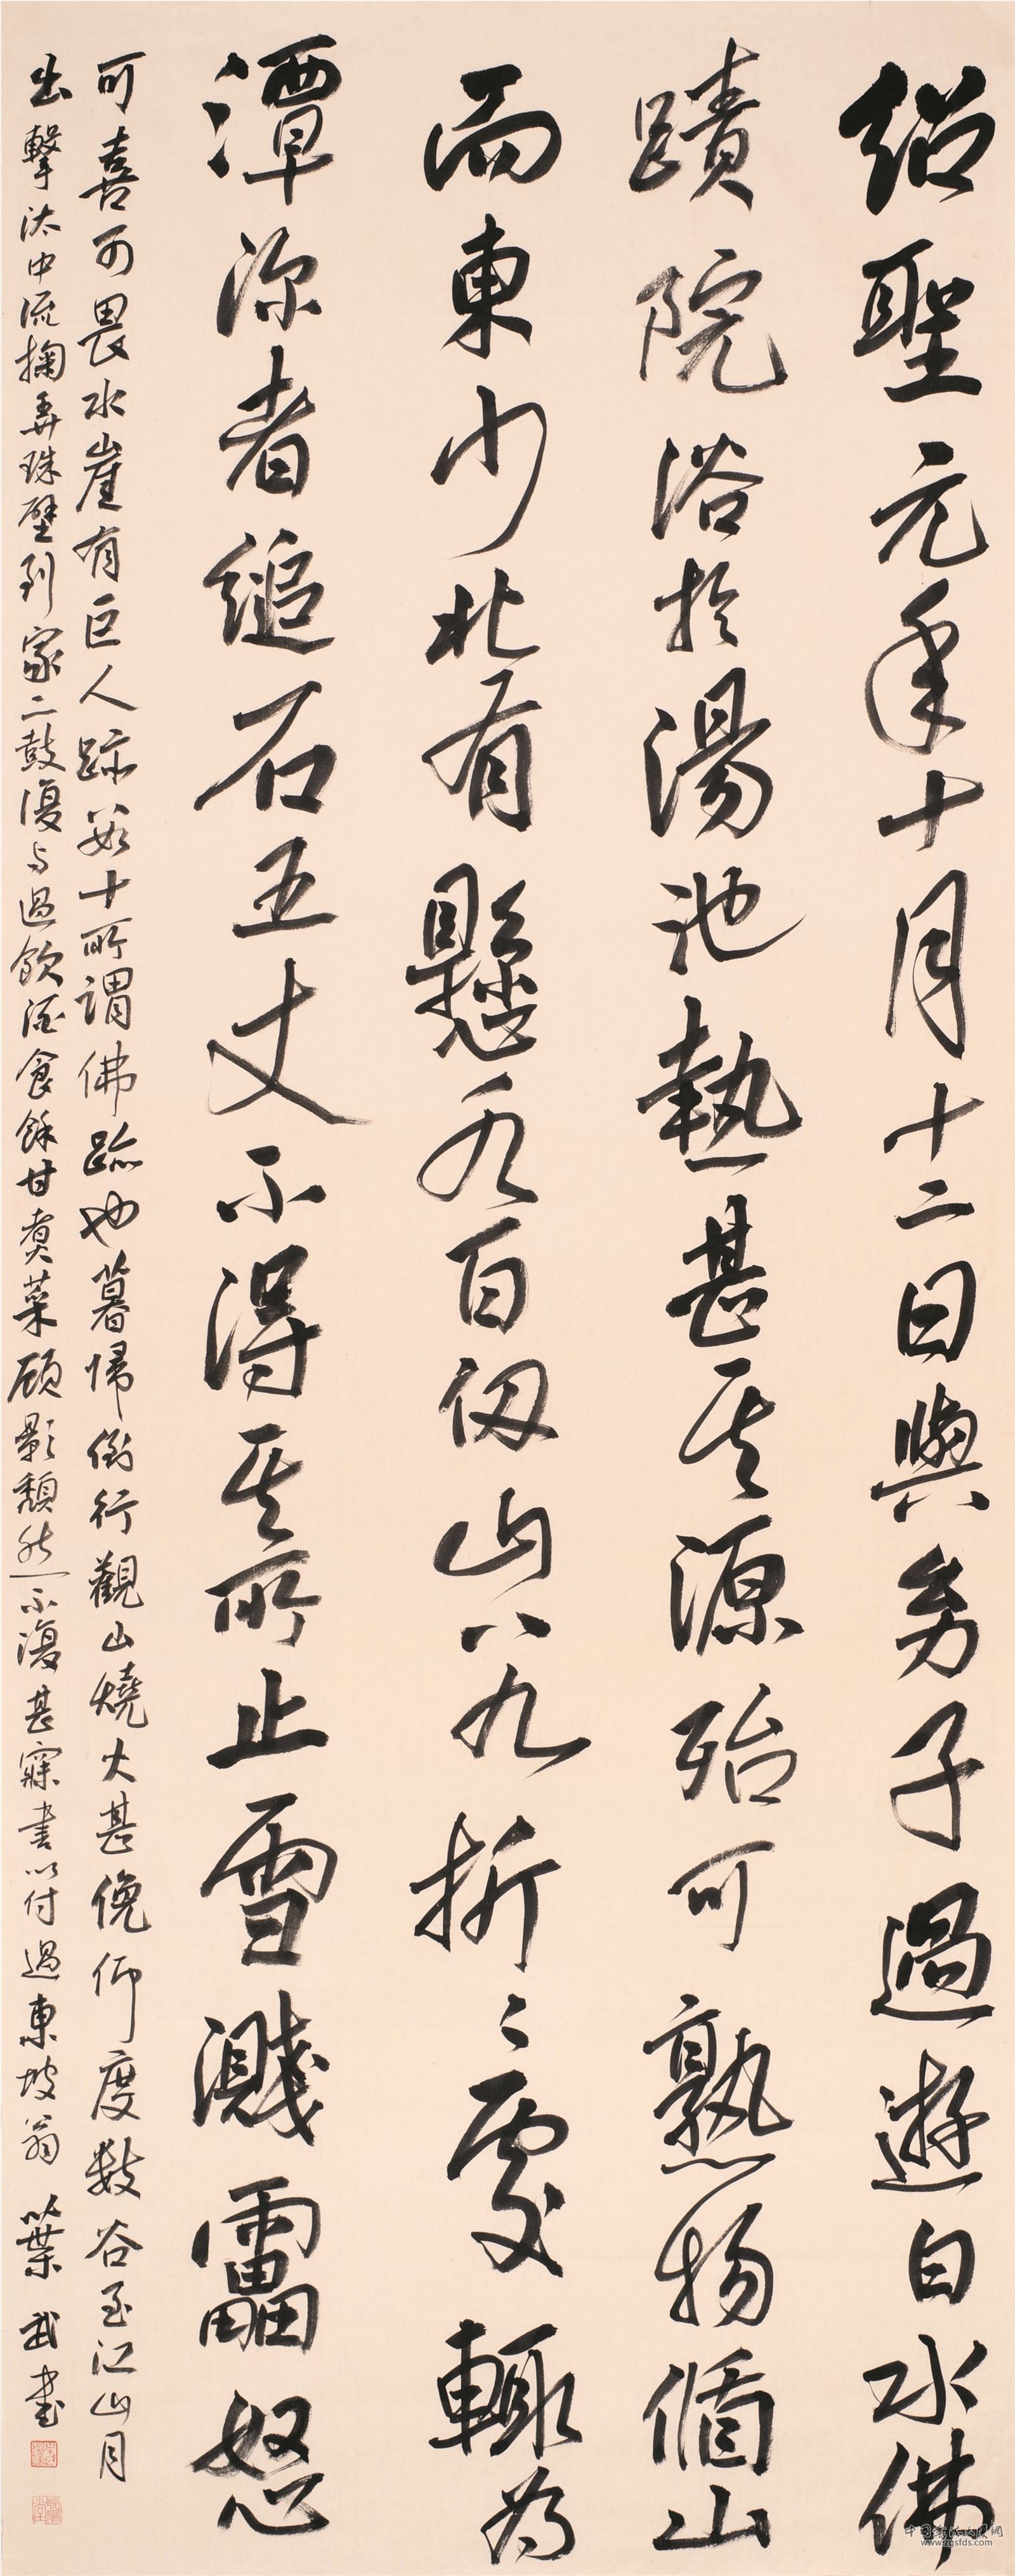 紹聖元年十月十二日與幼子過遊白水佛
蹟院浴於湯池熱甚其源殆可熟物循山
而東少北有懸水百仞山八九折折處輒為
潭深者縋石五丈不得其所止雪濺雷怒
可喜可畏水崖有巨人跡數十所謂佛跡也暮歸倒行觀山燒火甚俛仰度數谷至江山月
出擊汰中流掬弄珠璧到家二鼓復與過飲酒食餘甘煮菜顧影頹然不復甚寐書以付過東坡翁 葉武書
www.zgsfds.com